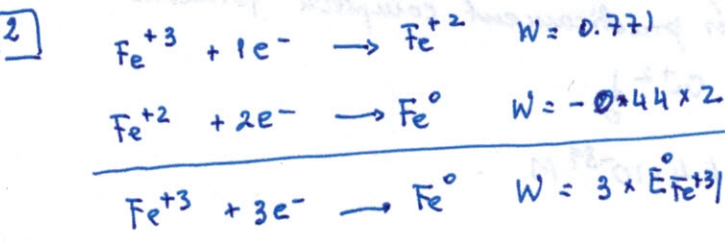 2
Fe⁺³ + 1e⁻ → Fe⁺² W = 0.771
Fe⁺² + 2e⁻ → Fe⁰ W = - 0.44 × 2
Fe⁺³ + 3e⁻ → Fe⁰ W = 3 × E⁰Fe⁺³/